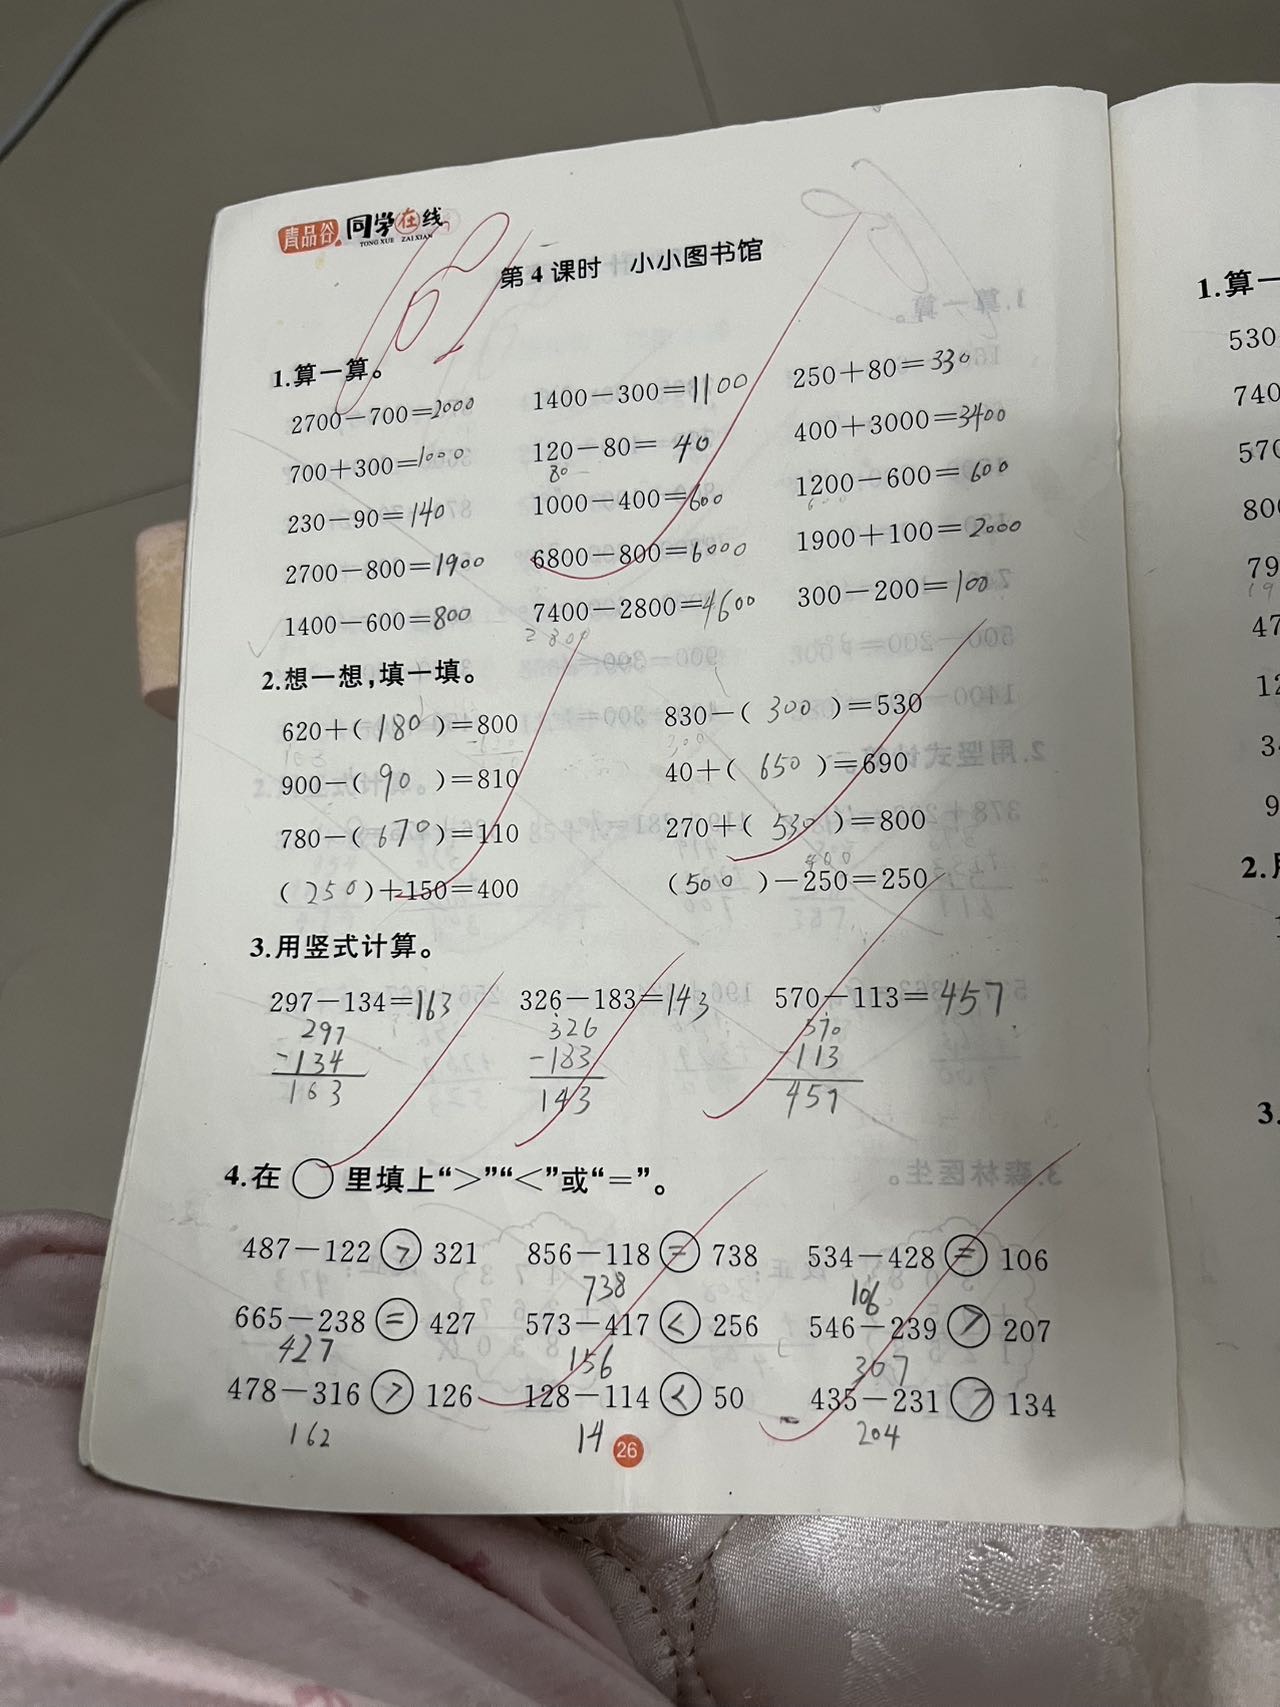 青品谷 同学在线
TONG XUE ZAI XIAN
第4课时 小小图书馆
1.算一算。
2700-700=2000 1400-300=1100 250+80=330
700+300=1000 120-80=40 400+3000=3400
80
230-90=140 1000-400=600 1200-600=600
600
2700-800=1900 6800-800=6000 1900+100=2000
1400-600=800 7400-2800=4600 300-200=100
2800
2.想一想,填一填。
620+(180)=800 830-(300)=530
300
900-(90)=810 40+(650)=690
780-(670)=110 270+(530)=800
400
(250)+150=400 (500)-250=250
3.用竖式计算。
297-134=163 326-183=143 570-113=457
297 326 570
-134 -183 -113
163 143 457
4.在○里填上“>”“<”或“=”。
487-122>321 856-118=738 534-428=106
738 106
665-238=427 573-417<256 546-239>207
427 156 307
478-316>126 128-114<50 435-231>134
162 14 204
26
1.算一
530
740
570
800
79
47
12
34
9
2.用
3.